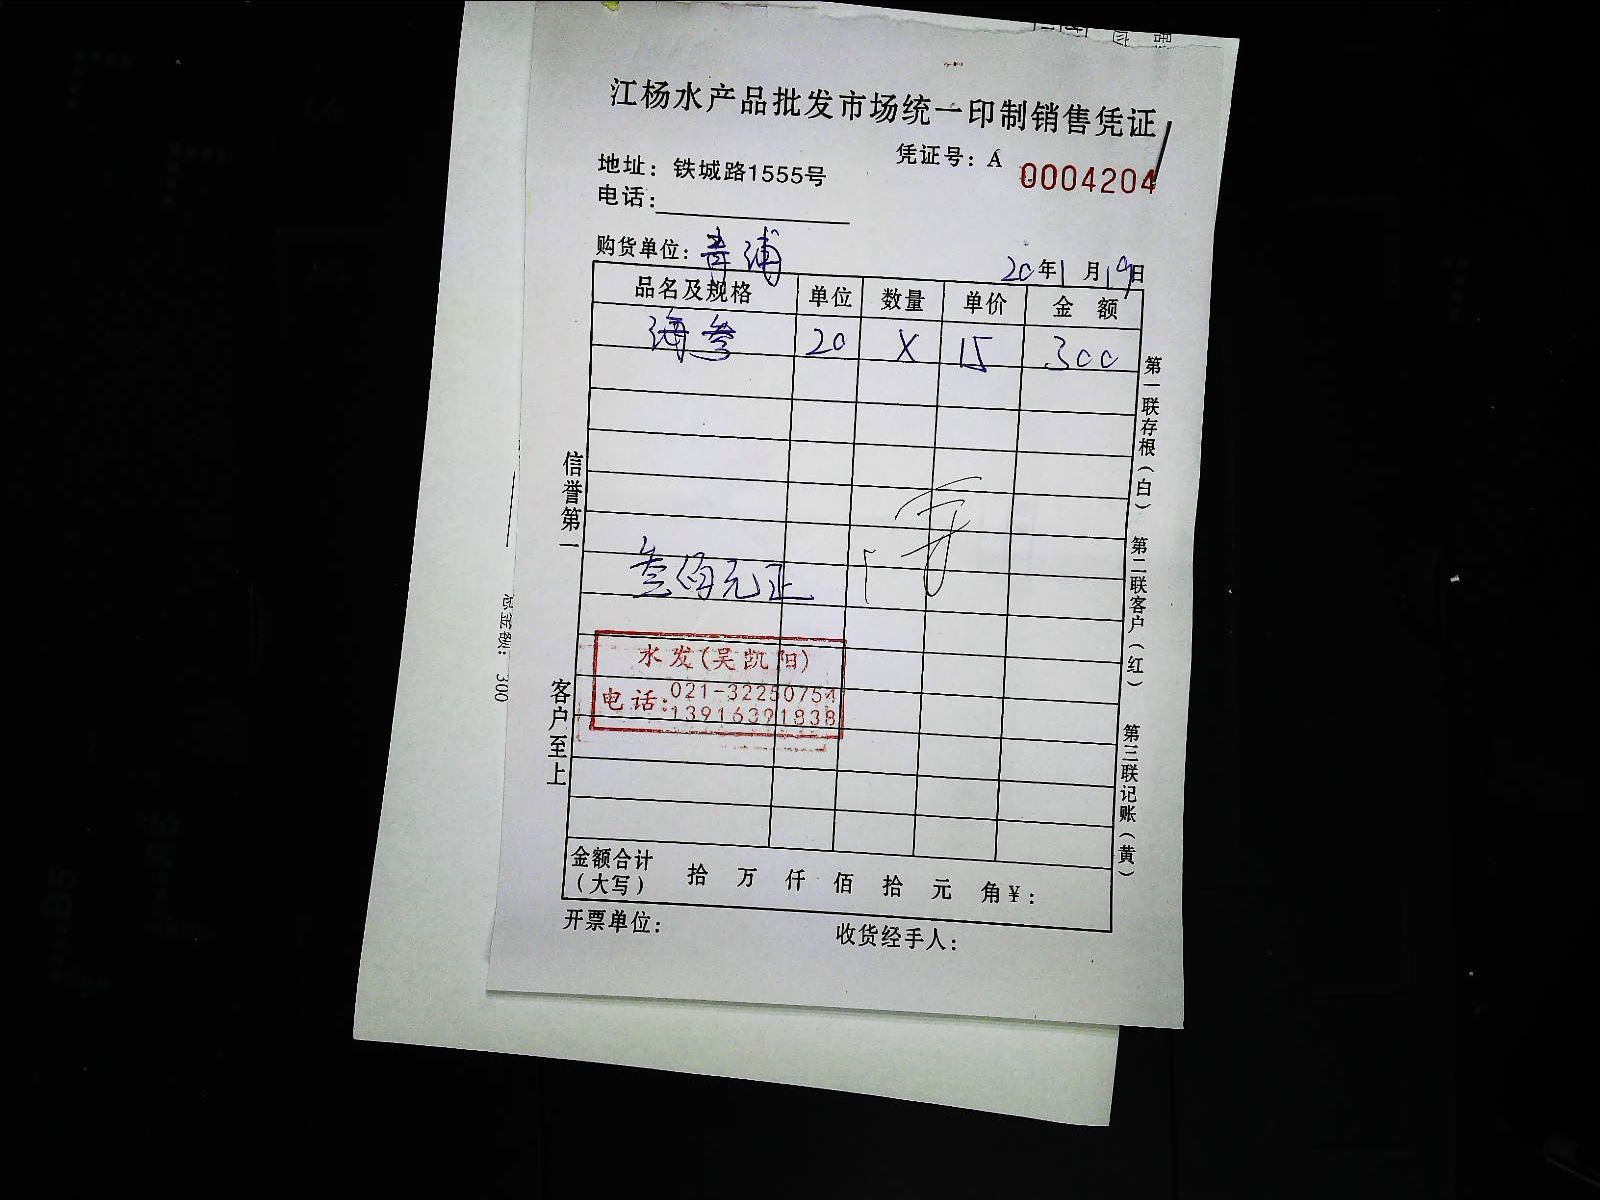 江杨水产品批发市场统一印制销售凭证
凭证号：A 0004204
地址：铁城路1555号
电话：
购货单位：青浦
20年1月19日
品名及规格 单位 数量 单价 金额
海参 20 X 15 300
叁佰元正
水发(吴凯阳)
电话:021-32250754
13916391838
金额合计（大写） 拾 万 仟 佰 拾 元 角 ¥：
开票单位： 收货经手人：
信誉第一
客户至上
第一联存根（白） 第二联客户（红） 第三联记账（黄）
总金额：300